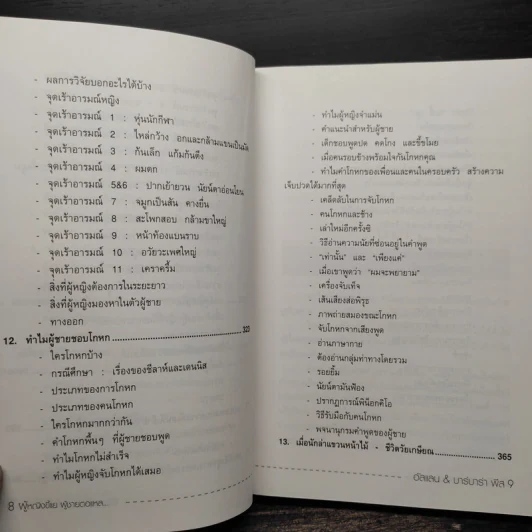 - ผลการวิจัยบอกอะไรได้บ้าง
- จุดเร้าอารมณ์หญิง
- จุดเร้าอารมณ์ 1 : หุ่นนักกีฬา
- จุดเร้าอารมณ์ 2 : ไหล่กว้าง อกและกล้ามแขนเป็นมัด
- จุดเร้าอารมณ์ 3 : ก้นเล็ก แก้มก้นตึง
- จุดเร้าอารมณ์ 4 : ผมดก
- จุดเร้าอารมณ์ 5&6 : ปากเย้ายวน นัยน์ตาอ่อนโยน
- จุดเร้าอารมณ์ 7 : จมูกเป็นสัน คางยื่น
- จุดเร้าอารมณ์ 8 : สะโพกสอบ กล้ามขาใหญ่
- จุดเร้าอารมณ์ 9 : หน้าท้องแบนราบ
- จุดเร้าอารมณ์ 10 : อวัยวะเพศใหญ่
- จุดเร้าอารมณ์ 11 : เคราครึ้ม
- สิ่งที่ผู้หญิงต้องการในระยะยาว
- สิ่งที่ผู้หญิงมองหาในตัวผู้ชาย
- ทางออก
12. ทำไมผู้ชายชอบโกหก............323
- ใครโกหกบ้าง
- กรณีศึกษา : เรื่องของชีล่าห์และเดนนิส
- ประเภทของการโกหก
- ประเภทของคนโกหก
- ใครโกหกมากกว่ากัน
- คำโกหกพื้นๆ ที่ผู้ชายชอบพูด
- ทำไมโกหกไม่สำเร็จ
- ทำไมผู้หญิงจับโกหกได้เสมอ
8 ผู้หญิงขี้แย ผู้ชายจอมหลอ...
- ทำไมผู้หญิงจำแม่น
- คำแนะนำสำหรับผู้ชาย
- เด็กชอบพูดปด คดโกง และขี้ขโมย
- เมื่อคนรอบข้างพร้อมใจกันโกหกคุณ
- ทำไมคำโกหกของเพื่อนและคนในครอบครัว สร้างความ
เจ็บปวดได้มากที่สุด
- เคล็ดลับในการจับโกหก
- คนโกหกและช้าง
- เล่าใหม่อีกครั้งซิ
- วิธีอ่านความนัยที่ซ่อนอยู่ในคำพูด
- "เท่านั้น" และ "เพียงแค่"
- เมื่อเขาพูดว่า "ผมจะพยายาม"
- เครื่องจับเท็จ
- เส้นเสียงส่อพิรุธ
- ภาพถ่ายสมองขณะโกหก
- จับโกหกจากเสียงพูด
- อ่านภาษากาย
- ต้องอ่านกลุ่มท่าทางโดยรวม
- รอยยิ้ม
- นัยน์ตามันฟ้อง
- ปรากฏการณ์พิน็อกคิโอ
- วิธีรับมือกับคนโกหก
- พจนานุกรมคำพูดของผู้ชาย
13. เมื่อนักล่าแขวนหน้าไม้ - ชีวิตวัยเกษียณ............365
อัลแลน & บาร์บาร่า พีส 9